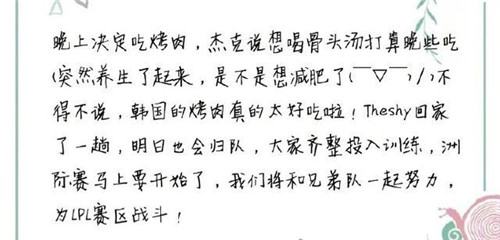 晚上决定吃烤肉，杰克说想喝骨头汤打算晚些吃
(突然养生了起来，是不是想减肥了(￣▽￣)/)不
得不说，韩国的烤肉真的太好吃啦！Theshy回家
了一趟，明日也会归队，大家齐整投入训练，洲
际赛马上要开始了，我们将和兄弟队一起努力，
为LPL赛区战斗！